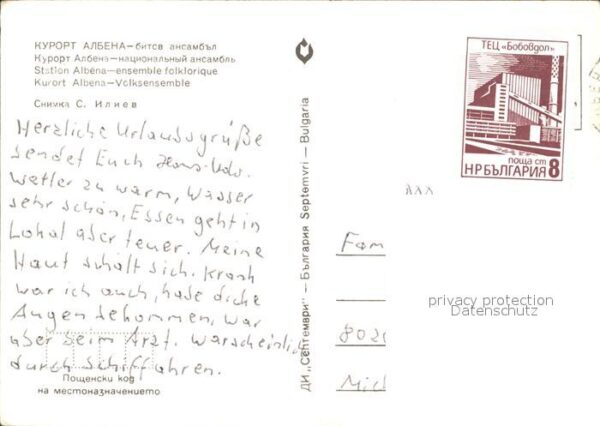 КУРОРТ АЛБЕНА—битов ансамбъл
Курорт Албена—национальный ансамбль
Station Albena—ensemble folklorique
Kurort Albena—Volksensemble
Снимка С. Илиев
Herzliche Urlaubsgrüße
sendet Euch Hans-Udo.
Wetter zu warm, Wasser
sehr schön, Essen geht in
Lokal aber teuer. Meine
Haut schält sich. Krank
war ich auch, habe dicke
Augen bekommen, war
aber beim Arzt. Warscheinlich
durch Schiffahren.
Пощенски код
на местоназначението
ДИ „Септември" — България Septemvri — Bulgaria
ТЕЦ „Бобовдол"
поща ст
НР БЪЛГАРИЯ 8
Fam
privacy protection
Datenschutz
802
Mich